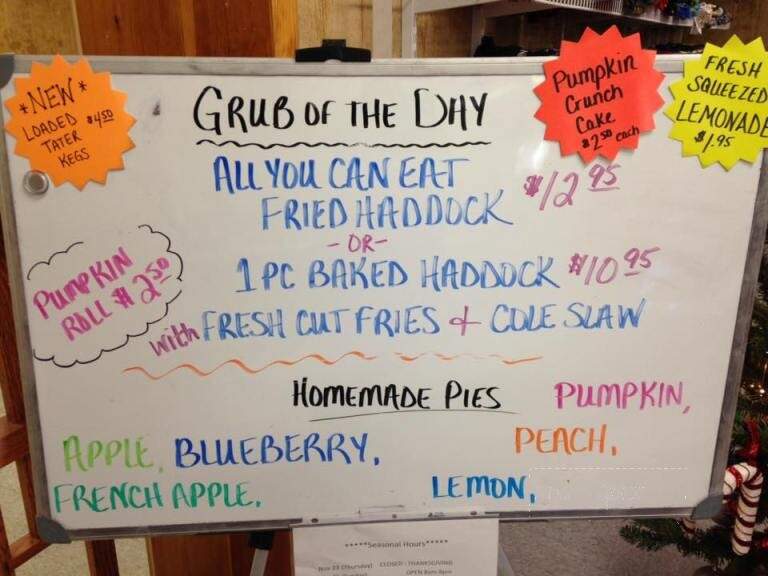 *NEW*
LOADED $4.50
TATER
KEGS
GRUB OF THE DAY
Pumpkin
Crunch
Cake
$2.50 each
FRESH
SQUEEZED
LEMONADE
$1.95
ALL YOU CAN EAT
FRIED HADDOCK $12.95
-OR-
1PC BAKED HADDOCK $10.95
with FRESH CUT FRIES & COLE SLAW
PUMPKIN
ROLL $2.50
HOMEMADE PIES PUMPKIN,
APPLE, BLUEBERRY, PEACH,
FRENCH APPLE, LEMON,
*****Seasonal Hours*****
Nov 23 (Thursday) CLOSED - THANKSGIVING